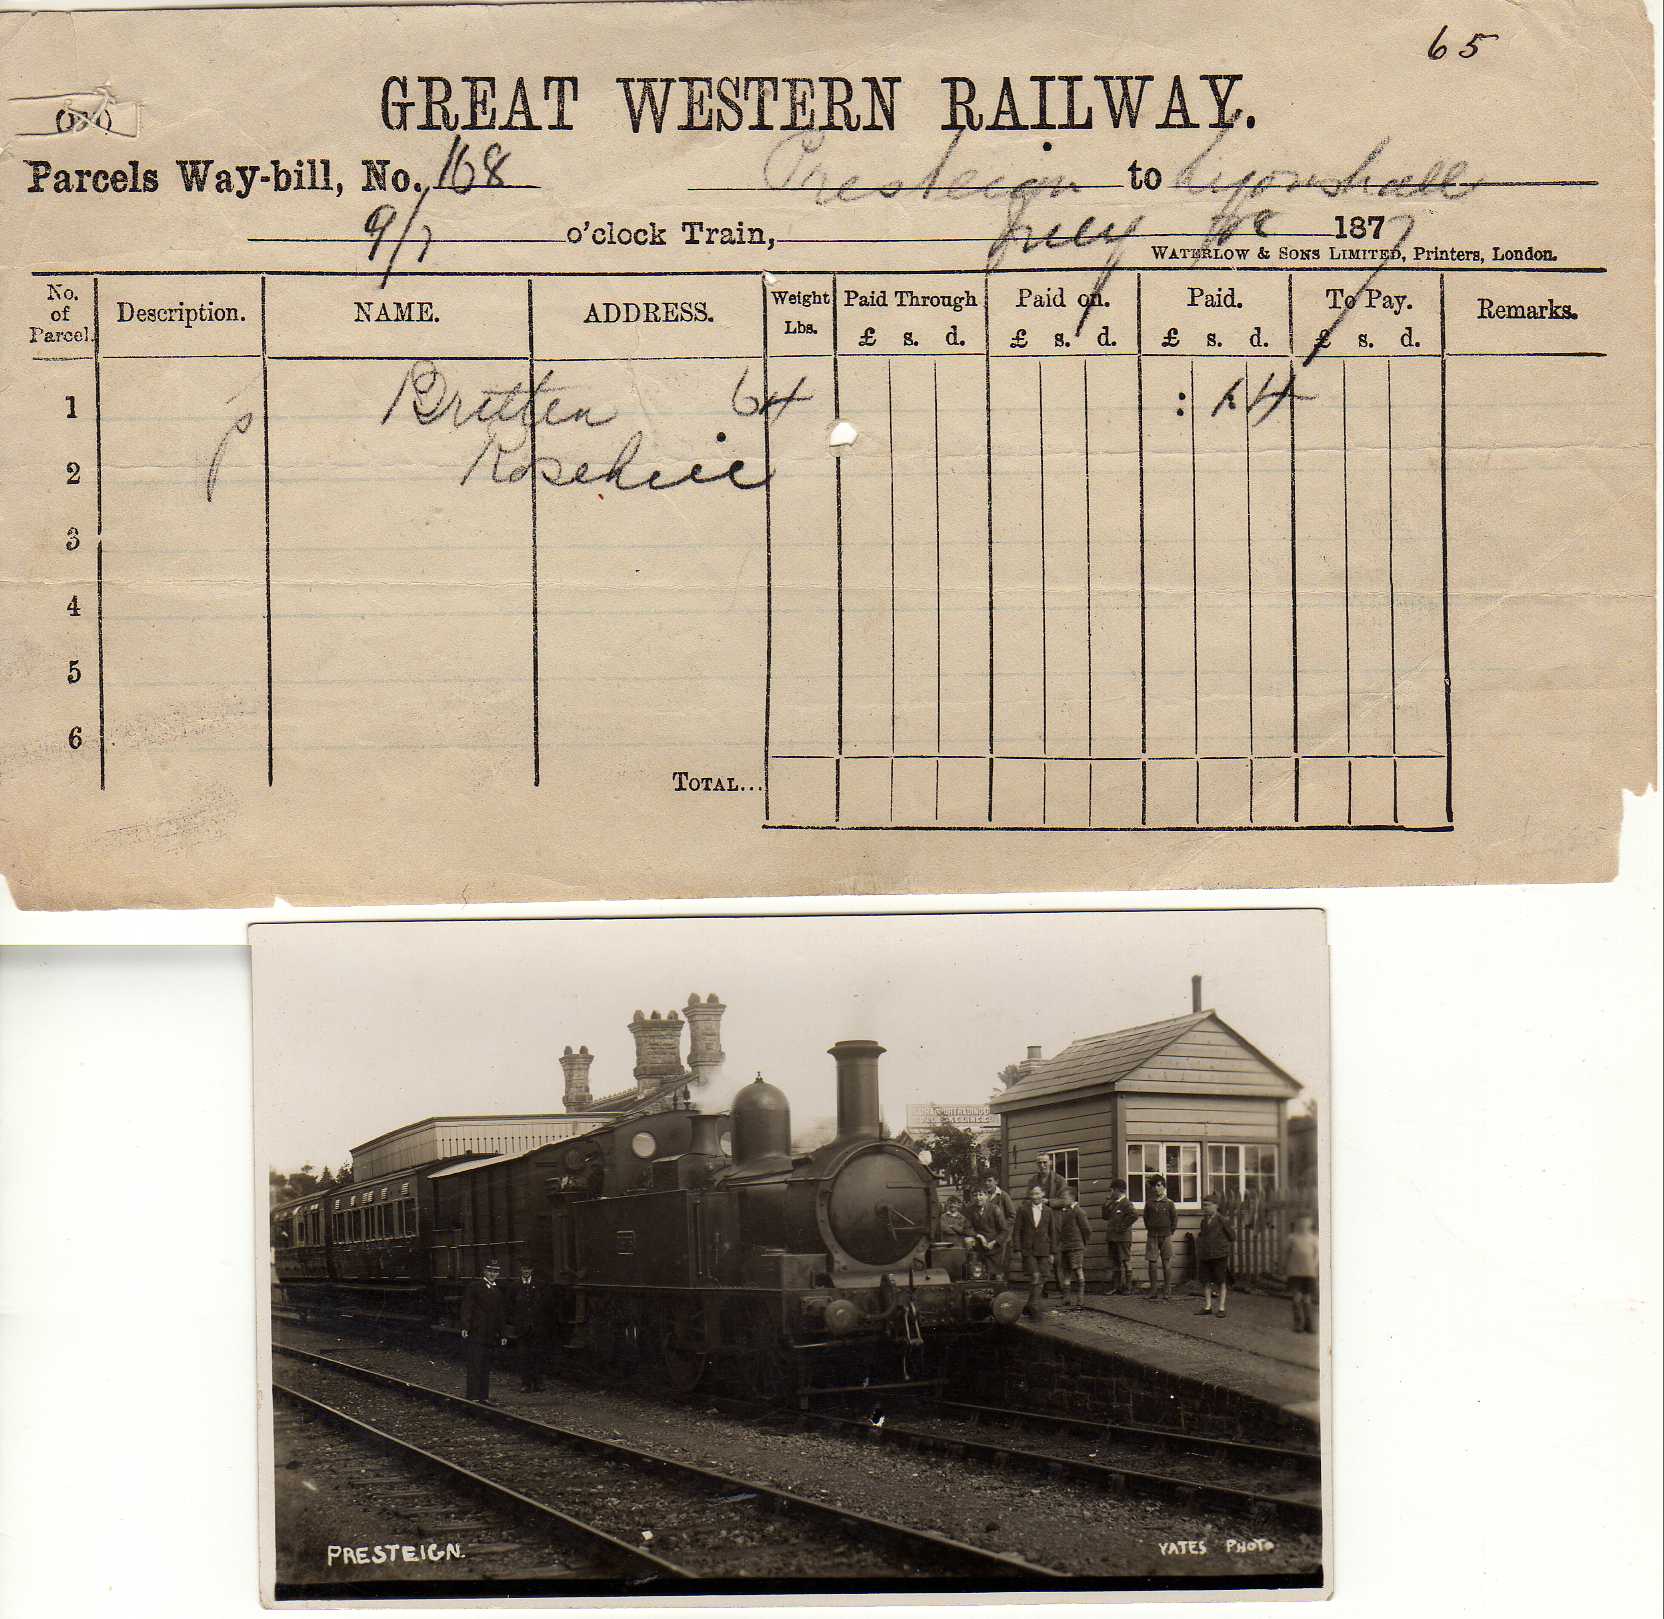 65
GREAT WESTERN RAILWAY.
Parcels Way-bill, No. 168 Presteign to Lyonshall
9/7 o'clock Train, July 1877
WATERLOW & SONS LIMITED, Printers, London.
No. of Parcel. Description. NAME. ADDRESS. Weight Lbs. Paid Through £ s. d. Paid on. £ s. d. Paid. £ s. d. To Pay. £ s. d. Remarks.
1 p Britten 64 : 4
2 Rosehill
3
4
5
6
TOTAL...
PRESTEIGN.
YATES PHOTO